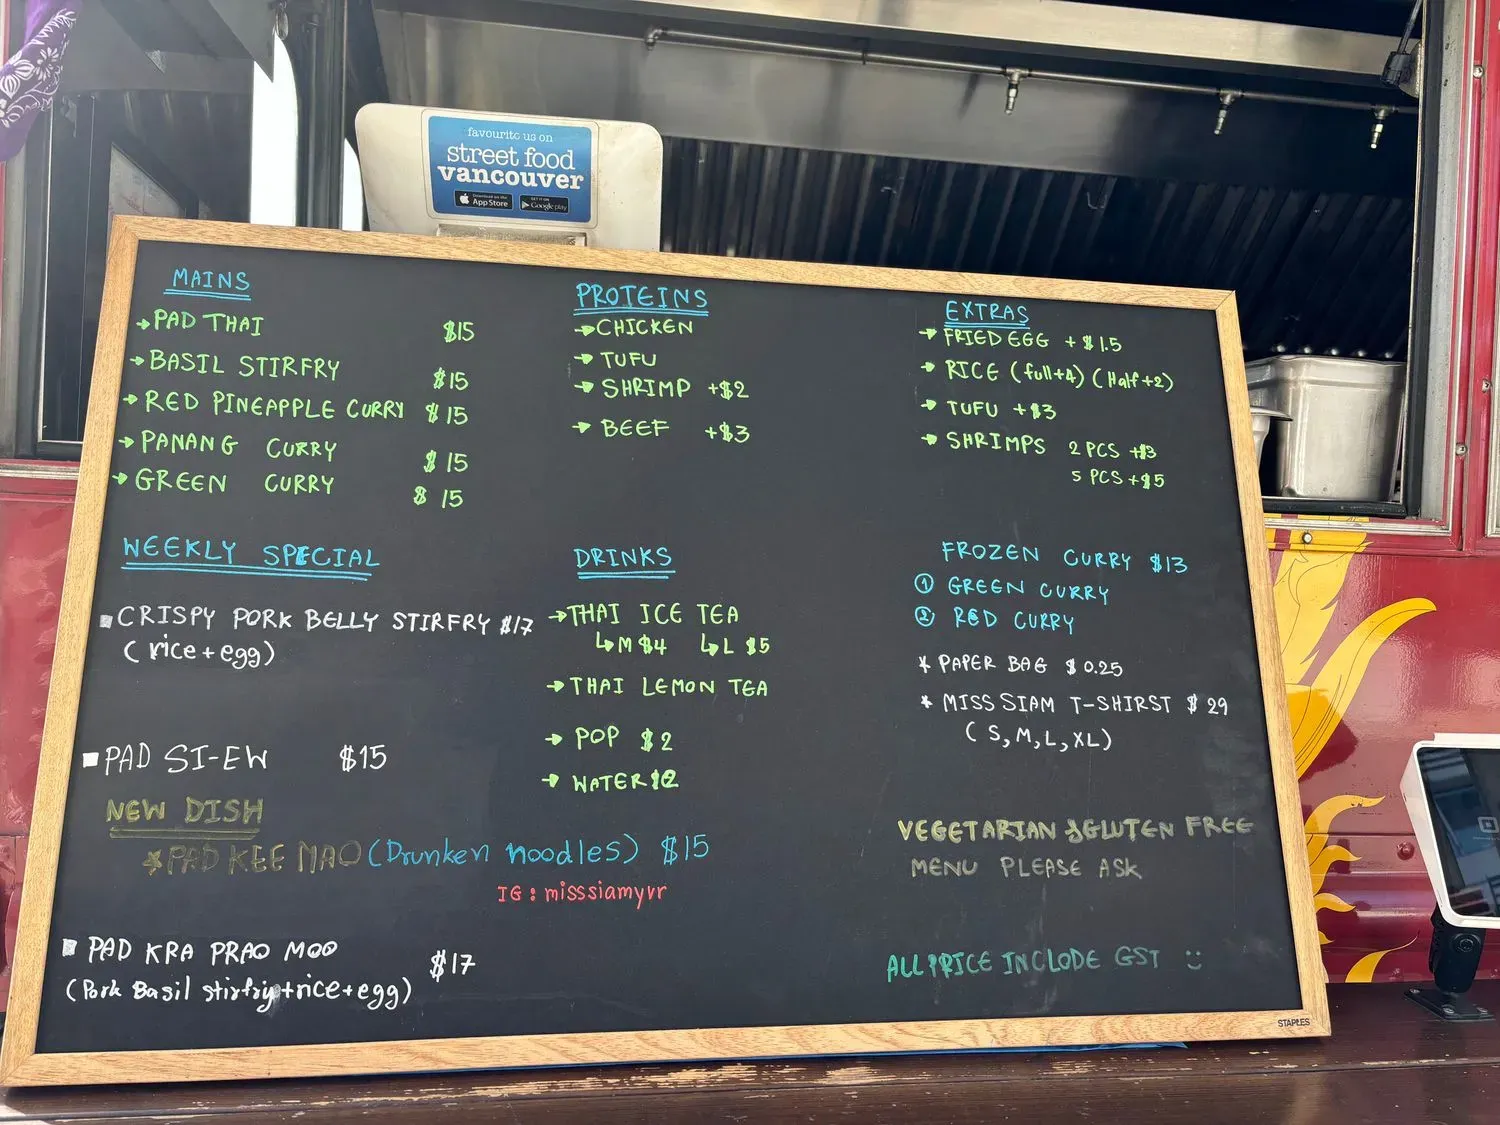 favourite us on
street food
vancouver
Download on the
App Store
GET IT ON
Google play
MAINS
→ PAD THAI $15
→ BASIL STIRFRY $15
→ RED PINEAPPLE CURRY $15
→ PANANG CURRY $15
→ GREEN CURRY $15
PROTEINS
→ CHICKEN
→ TUFU
→ SHRIMP +$2
→ BEEF +$3
EXTRAS
→ FRIED EGG + $1.5
→ RICE (full+4) (Half+2)
→ TUFU +$3
→ SHRIMPS 2 PCS +$3
5 PCS +$5
WEEKLY SPECIAL
CRISPY PORK BELLY STIRFRY $17
(rice+egg)
PAD SI-EW $15
NEW DISH
★ PAD KEE MAO (Drunken noodles) $15
IG: misssiamyvr
PAD KRA PRAO MOO $17
(Pork Basil stirfry+rice+egg)
DRINKS
→ THAI ICE TEA
↳ M $4 ↳ L $5
→ THAI LEMON TEA
→ POP $2
→ WATER $2
FROZEN CURRY $13
① GREEN CURRY
② RED CURRY
* PAPER BAG $0.25
* MISS SIAM T-SHIRST $29
(S,M,L,XL)
VEGETARIAN & GLUTEN FREE
MENU PLEASE ASK
ALL PRICE INCLUDE GST
STAPLES